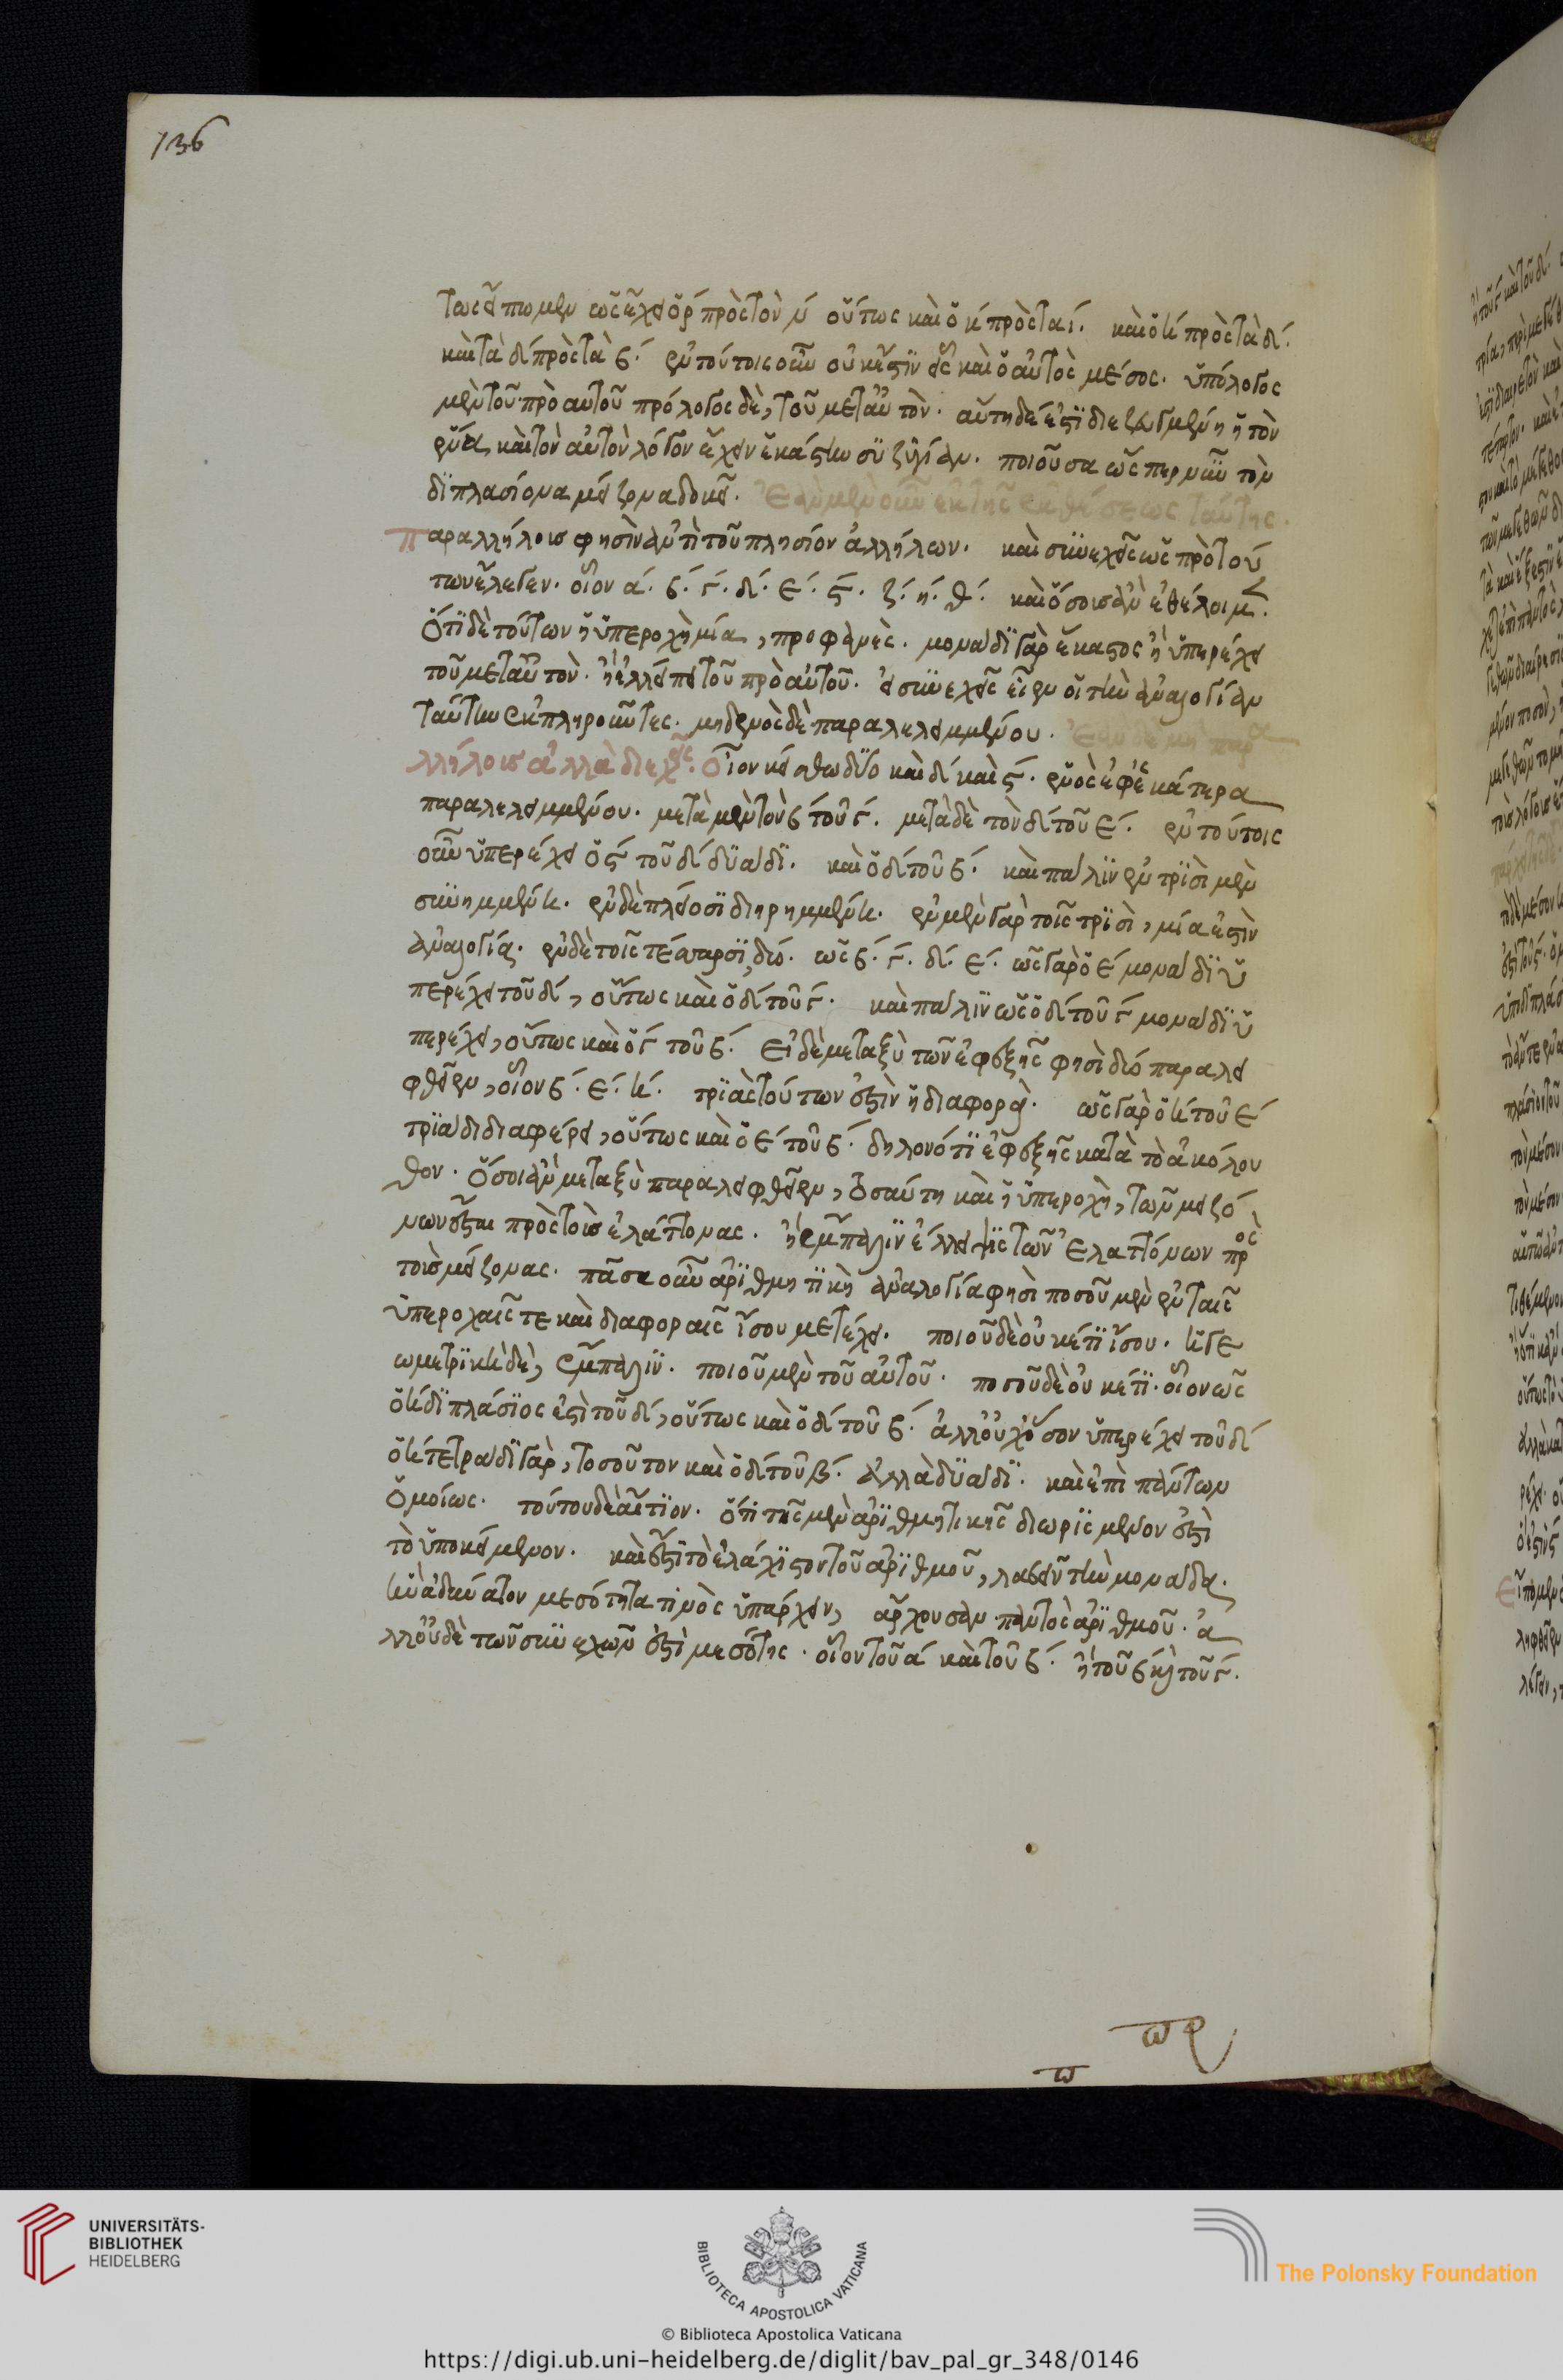 136
τως εἴπωμεν ὡς ἔχει ὁ ρ´ πρὸς τὸν μ´ οὕτως καὶ ὁ κ´ πρὸς τὰ ι´. καὶ ὁ η´ πρὸς τὰ δ´.
καὶ τὰ δ´ πρὸς τὰ β´. ἐν τούτοις οὖν οὐκ ἔστιν εἷς καὶ ὁ αὐτὸς μέσος. ὑπόλογος
μὲν τοῦ πρὸ αὐτοῦ πρόλογος δὲ, τοῦ μετ' αὐτὸν. αὕτη δέ ἐστι διεζευγμένη ἢ τὸν
ἕνα, καὶ τὸν αὐτὸν λόγον ἔχειν ἑκάστην συζυγίαν. ποιοῦσα ὥσπερ νῦν τὸν
διπλασίονα μείζονα δοκεῖ. Ἐὰν μὲν οὖν ἐκ τῆς ἐκθέσεως ταύτης.
Παραλλήλοις φησὶν ἀντὶ τοῦ πλησίον ἀλλήλων. καὶ συνεχεῖς ὡς πρὸ τού
των ἔλεγεν. οἷον α´. β´. γ´. δ´. ε´. ς´. ζ´. η´. θ´. καὶ ὅσοις ἂν ἐθέλοιμεν.
Ὅτι δὲ τούτων ἡ ὑπεροχὴ μία, προφανὲς. μονάδι γὰρ ἕκαστος ἢ ὑπερέχει
τοῦ μετ' αὐτὸν. ἢ ἐλλείπει τοῦ πρὸ αὐτοῦ. εἰ συνεχεῖς εἶεν οἱ τὴν ἀναλογίαν
ταύτην ἐκπληροῦντες. μηδενὸς δὲ παραλελειμμένου. Ἐὰν δὲ μὴ παρα
λλήλοις ἀλλὰ διεχεῖς. Οἷον κείσθω δύο καὶ δ´ καὶ ς´. ἑνὸς ἐφ' ἑκάτερα
παραλελειμμένου. μετὰ μὲν τὸν β´ τοῦ γ´. μετὰ δὲ τὸν δ´ τοῦ ε´. ἐν τούτοις
οὖν ὑπερέχει ὁ ς´ τοῦ δ´ δυάδι. καὶ ὁ δ´ τοῦ β´. καὶ πάλιν ἐν τρισὶ μὲν
συνημμένη. ἐν δὲ πλείοσι διῃρημμένη. ἐν μὲν γὰρ τοῖς τρισὶ, μία ἐστὶν
ἀναλογία. ἐν δὲ τοῖς τέσσαρσι, δύο. ὡς β´. γ´. δ´. ε´. ὡς γὰρ ὁ ε´ μονάδι ὑ
περέχει τοῦ δ´, οὕτως καὶ ὁ δ´ τοῦ γ´. καὶ πάλιν ὡς ὁ δ´ τοῦ γ´ μονάδι ὑ
περέχει, οὕτως καὶ ὁ γ´ τοῦ β´. Εἰ δὲ μεταξὺ τῶν ἐφεξῆς φησὶ δύο παραλει
φθεῖεν, οἷον β´. ε´. η´. τριὰς τούτων ἐστὶν ἡ διαφορά. ὡς γὰρ ὁ η´ τοῦ ε´
τριάδι διαφέρει, οὕτως καὶ ὁ ε´ τοῦ β´. δηλονότι ἐφεξῆς κατὰ τὸ ἀκόλου
θον. Ὅσοι ἂν μεταξὺ παραλειφθεῖεν, ὁσαύτη καὶ ἡ ὑπεροχὴ, τῶν μειζό
νων ἔσται πρὸς τοὺς ἐλάττονας. ἢ ἔμπαλιν ἔλλειψις τῶν ἐλαττόνων πρὸς
τοὺς μείζονας. πᾶσα οὖν ἀριθμητικὴ ἀναλογία φησὶ ποσοῦ μὲν ἐν ταῖς
ὑπεροχαῖς τε καὶ διαφοραῖς ἴσου μετέχει. ποιοῦ δὲ οὐκέτι ἴσου. ἡ γε
ωμετρικὴ δὲ, ἔμπαλιν. ποιοῦ μὲν τοῦ αὐτοῦ. ποσοῦ δὲ οὐκέτι. οἷον ὡς
ὁ η´ διπλάσιος ἐστὶ τοῦ δ´, οὕτως καὶ ὁ δ´ τοῦ β´. ἀλλ' οὐχ ὅσον ὑπερέχει τοῦ δ´
ὁ η´ τετράδι γὰρ, τοσοῦτον καὶ ὁ δ´ τοῦ β´. ἀλλὰ δυάδι. καὶ ἐπὶ πάντων
ὁμοίως. τούτου δὲ αἴτιον. ὅτι τῆς μὲν ἀριθμητικῆς διωρισμένον ἐστὶ
τὸ ὑποκείμενον. καὶ ἔστι τὸ ἐλάχιστον τοῦ ἀριθμοῦ, λαβεῖν τὴν μονάδα.
ἣν ἀδύνατον μεσότητα τινὸς ὑπάρχειν, ἄρχουσαν παντὸς ἀριθμοῦ. ἀ
λλ' οὐδὲ τῶν συνεχῶν ἐστὶ μεσότης. οἷον τοῦ α´ καὶ τοῦ β´. ἢ τοῦ β´ καὶ τοῦ γ´.
UNIVERSITÄTS-
BIBLIOTHEK
HEIDELBERG
BIBLIOTECA APOSTOLICA VATICANA
The Polonsky Foundation
© Biblioteca Apostolica Vaticana
https://digi.ub.uni-heidelberg.de/diglit/bav_pal_gr_348/0146